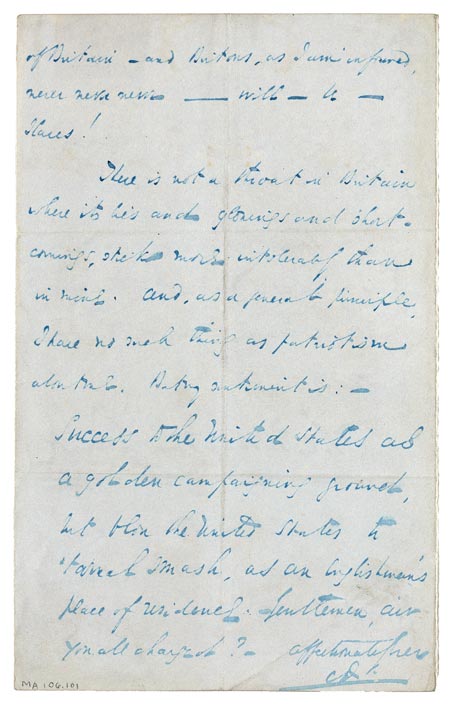 of Britain – and Britons, as I am informed,
never never never —— will – be –
Slaves!
There is not a throat in Britain
where its lies and glozings and short-
comings, stick more intolerably than
in mine. And, as a general principle,
I have no such thing as patriotism
about me. But my sentiment is: –
Success to the United States as
a golden campaigning ground,
but blow the United States to
'tarnal smash, as an Englishman's
place of residence. Gentlemen, are
you all charged? – affectionately ever
CD
MA 106.101